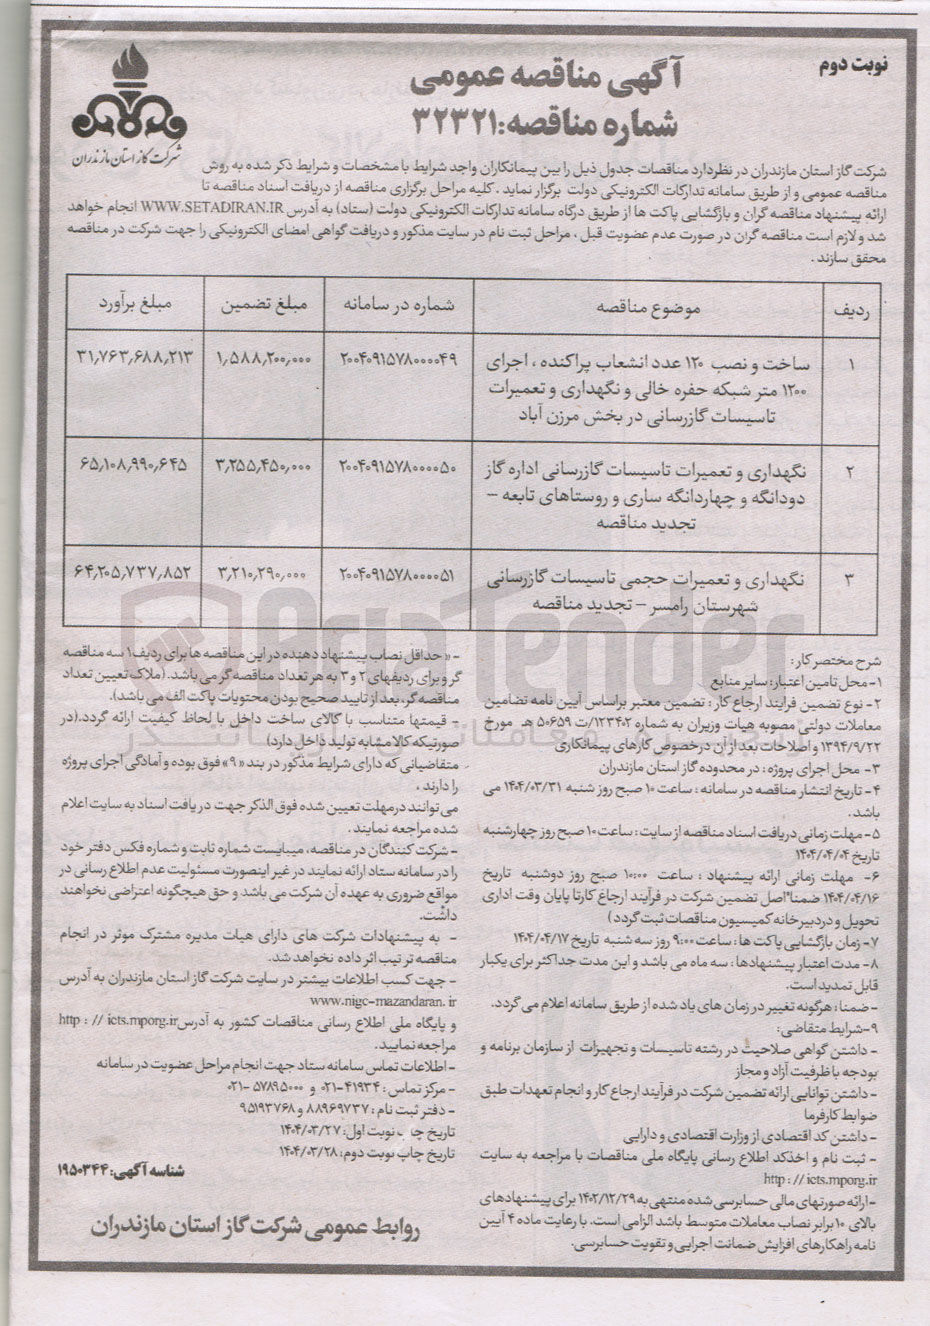 نوبت دوم
آگهی مناقصه عمومی
شماره مناقصه:۳۲۳۲۱
شرکت گاز استان مازندران
شرکت گاز استان مازندران در نظردارد مناقصات جدول ذیل را بین پیمانکاران واجد شرایط با مشخصات و شرایط ذکر شده به روش
مناقصه عمومی و از طریق سامانه تدارکات الکترونیکی دولت برگزار نماید . کلیه مراحل برگزاری مناقصه از دریافت اسناد مناقصه تا
ارائه پیشنهاد مناقصه گران و بازگشایی پاکت ها از طریق درگاه سامانه تدارکات الکترونیکی دولت (ستاد) به آدرس WWW.SETADIRAN.IR انجام خواهد
شد و لازم است مناقصه گران در صورت عدم عضویت قبل ، مراحل ثبت نام در سایت مذکور و دریافت گواهی امضای الکترونیکی را جهت شرکت در مناقصه
محقق سازند .
ردیف موضوع مناقصه شماره در سامانه مبلغ تضمین مبلغ برآورد
۱ ساخت و نصب ۱۲۰ عدد انشعاب پراکنده ، اجرای ۲۰۰۴۰۹۱۵۷۸۰۰۰۰۴۹ ۱٫۵۸۸٫۲۰۰٫۰۰۰ ۳۱٫۷۶۳٫۶۸۸٫۲۱۳
۱۲۰۰ متر شبکه حفره خالی و نگهداری و تعمیرات
تاسیسات گازرسانی در بخش مرزن آباد
۲ نگهداری و تعمیرات تاسیسات گازرسانی اداره گاز ۲۰۰۴۰۹۱۵۷۸۰۰۰۰۵۰ ۳٫۲۵۵٫۴۵۰٫۰۰۰ ۶۵٫۱۰۸٫۹۹۰٫۶۴۵
دودانگه و چهاردانگه ساری و روستاهای تابعه –
تجدید مناقصه
۳ نگهداری و تعمیرات حجمی تاسیسات گازرسانی ۲۰۰۴۰۹۱۵۷۸۰۰۰۰۵۱ ۳٫۲۱۰٫۲۹۰٫۰۰۰ ۶۴٫۲۰۵٫۷۳۷٫۸۵۲
شهرستان رامسر – تجدید مناقصه
AriaTender
شرح مختصر کار :
۱- محل تامین اعتبار: سایر منابع
۲- نوع تضمین فرایند ارجاع کار : تضمین معتبر براساس آیین نامه تضامین
معاملات دولتی مصوبه هیات وزیران به شماره ۱۲۳۴۰۲/ت ۵۰۶۵۹ هـ مورخ
۱۳۹۴/۹/۲۲ و اصلاحات بعد از آن درخصوص کارهای پیمانکاری
۳- محل اجرای پروژه : در محدوده گاز استان مازندران
۴- تاریخ انتشار مناقصه در سامانه : ساعت ۱۰ صبح روز شنبه ۱۴۰۴/۰۳/۳۱ می
باشد.
۵- مهلت زمانی دریافت اسناد مناقصه از سایت : ساعت ۱۰ صبح روز چهارشنبه
تاریخ ۱۴۰۴/۰۴/۰۴
۶- مهلت زمانی ارائه پیشنهاد : ساعت ۱۰:۰۰ صبح روز دوشنبه تاریخ
۱۴۰۴/۰۴/۱۶ ضمنا"اصل تضمین شرکت در فرآیند ارجاع کارتا پایان وقت اداری
تحویل و دردبیرخانه کمیسیون مناقصات ثبت گردد)
۷- زمان بازگشایی پاکت ها : ساعت ۹:۰۰ روز سه شنبه تاریخ ۱۴۰۴/۰۴/۱۷
۸- مدت اعتبار پیشنهادها : سه ماه می باشد و این مدت حداکثر برای یکبار
قابل تمدید است.
- ضمنا : هرگونه تغییر در زمان های یاد شده از طریق سامانه اعلام می گردد.
۹-شرایط متقاضی:
- داشتن گواهی صلاحیت در رشته تاسیسات و تجهیزات از سازمان برنامه و
بودجه با ظرفیت آزاد و مجاز
- داشتن توانایی ارائه تضمین شرکت در فرآیند ارجاع کار و انجام تعهدات طبق
ضوابط کارفرما
- داشتن کد اقتصادی از وزارت اقتصادی و دارایی
- ثبت نام و اخذکد اطلاع رسانی پایگاه ملی مناقصات با مراجعه به سایت
http : // icts.mporg.ir
-ارائه صورتهای مالی حسابرسی شده منتهی به ۱۴۰۲/۱۲/۲۹ برای پیشنهادهای
بالای ۱۰ برابر نصاب معاملات متوسط باشد الزامی است. با رعایت ماده ۴ آیین
نامه راهکارهای افزایش ضمانت اجرایی و تقویت حسابرسی.
- « حداقل نصاب پیشنهاد دهنده در این مناقصه ها برای ردیف۱ سه مناقصه
گر و برای ردیفهای ۲ و ۳ به هر تعداد مناقصه گر می باشد. (ملاک تعیین تعداد
مناقصه گر، بعد از تایید صحیح بودن محتویات پاکت الف می باشد).
- قیمتها متناسب با کالای ساخت داخل با لحاظ کیفیت ارائه گردد.(در
صورتیکه کالا مشابه تولید داخل دارد)
متقاضیانی که دارای شرایط مذکور در بند « ۹» فوق بوده و آمادگی اجرای پروژه
را دارند ،
می توانند درمهلت تعیین شده فوق الذکر جهت دریافت اسناد به سایت اعلام
شده مراجعه نمایند .
- شرکت کنندگان در مناقصه ، میبایست شماره ثابت و شماره فکس دفتر خود
را در سامانه ستاد ارائه نمایند در غیر اینصورت مسئولیت عدم اطلاع رسانی در
مواقع ضروری به عهده آن شرکت می باشد و حق هیچگونه اعتراضی نخواهند
داشت.
- به پیشنهادات شرکت های دارای هیات مدیره مشترک موثر در انجام
مناقصه ترتیب اثر داده نخواهد شد.
- جهت کسب اطلاعات بیشتر در سایت شرکت گاز استان مازندران به آدرس
www.nigc-mazandaran. ir
و پایگاه ملی اطلاع رسانی مناقصات کشور به آدرسhttp : // icts.mporg.ir
مراجعه نمایید.
- اطلاعات تماس سامانه ستاد جهت انجام مراحل عضویت در سامانه
- مرکز تماس : ۴۱۹۳۴-۰۲۱ و ۵۷۸۹۵۰۰۰ -۰۲۱
- دفتر ثبت نام : ۸۸۹۶۹۷۳۷ و ۹۵۱۹۳۷۶۸
تاریخ چاپ نوبت اول: ۱۴۰۴/۰۳/۲۷
تاریخ چاپ نوبت دوم: ۱۴۰۴/۰۳/۲۸
شناسه آگهی: ۱۹۵۰۳۴۴
روابط عمومی شرکت گاز استان مازندران